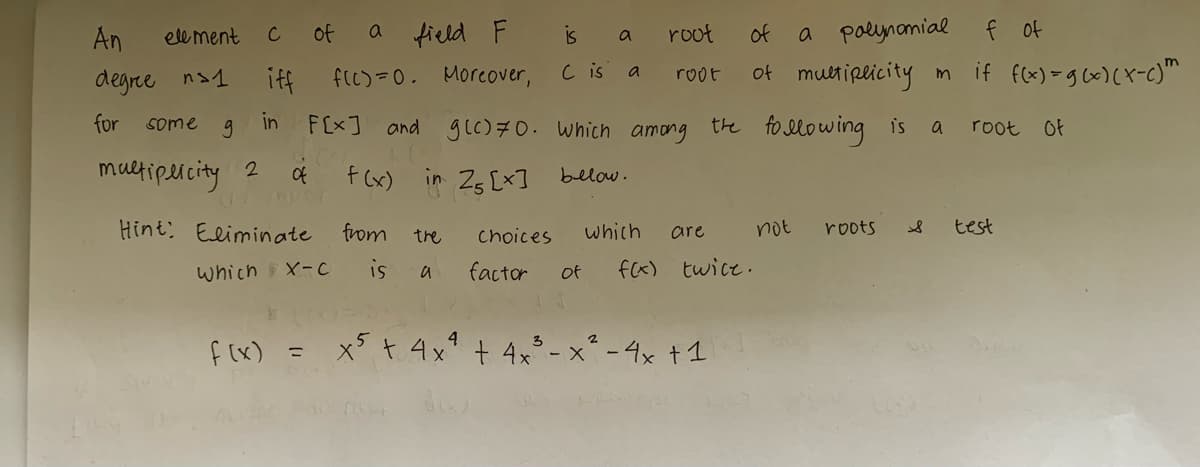 An element c of a field F is a root of a polynomial f of
degree n≥1 iff f(c)=0. Moreover, c is a root of multiplicity m if f(x)=g(x)(x-c)^m
for some g in F[x] and g(c)≠0. Which among the following is a root of
multiplicity 2 of f(x) in Z₅[x] below.
Hint: Eliminate from the choices which are not roots & test
which x-c is a factor of f(x) twice.
f(x) = x⁵ + 4x⁴ + 4x³ - x² - 4x + 1